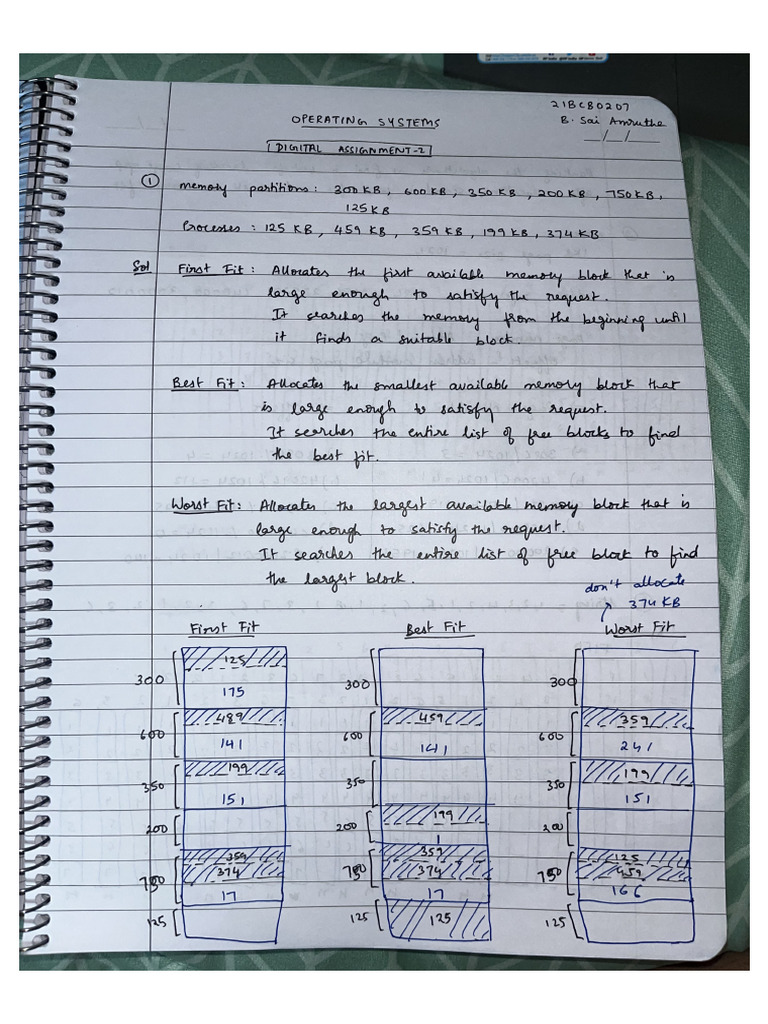 21BCB0207
OPERATING SYSTEMS
B. Sai Amrutha
__/__/__
DIGITAL ASSIGNMENT-2
① Memory partitions : 300 KB , 600 KB , 350 KB , 200 KB , 750 KB ,
125 KB
Processes : 125 KB , 459 KB , 359 KB , 199 KB , 374 KB
Sol First Fit : Allocates the first available memory block that is
large enough to satisfy the request.
It searches the memory from the beginning until
it finds a suitable block.
Best Fit : Allocates the smallest available memory block that
is large enough to satisfy the request.
It searches the entire list of free blocks to find
the best fit.
Worst Fit : Allocates the largest available memory block that is
large enough to satisfy the request.
It searches the entire list of free block to find
the largest block.
don't allocate
374 KB
First Fit Best Fit Worst Fit
300 125 300 300
175
600 489 600 459 600 359
141 141 241
350 199 350 350 199
151 151
200 200 199 200
1
750 359 750 359 750 125
374 374 459
17 17 166
125 125 125 125